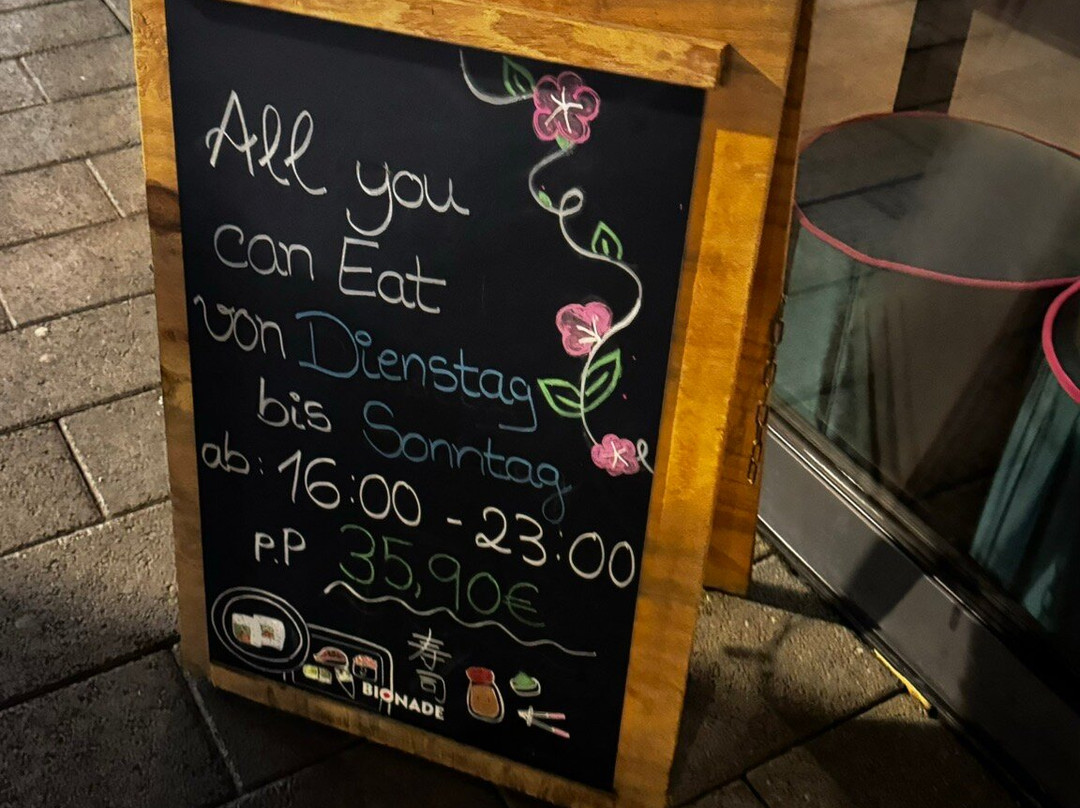 All you
can Eat
von Dienstag
bis Sonntag
ab: 16:00 - 23:00
p.P 35,90€
寿司
BIONADE